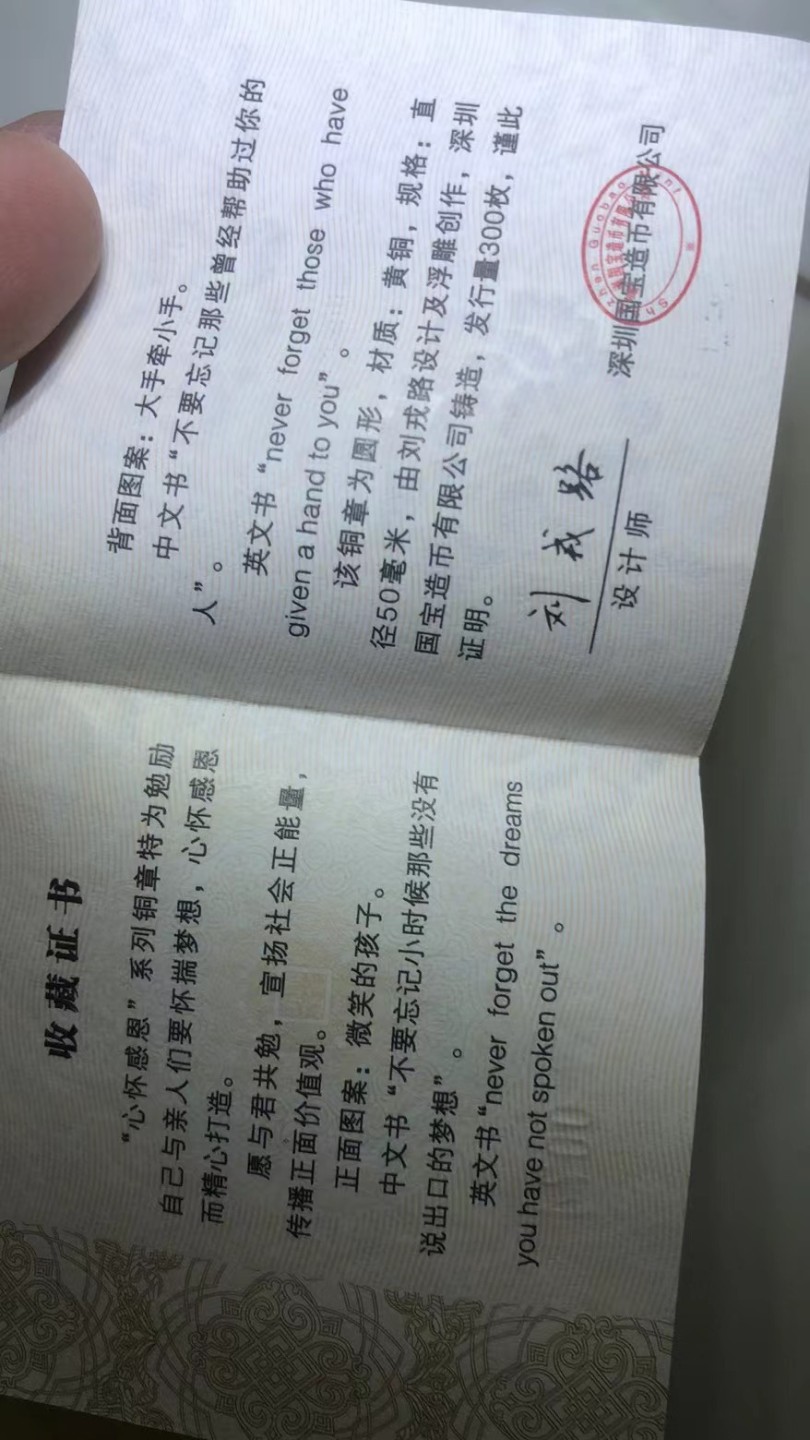 收藏证书
“心怀感恩”系列铜章特为勉励
自己与亲人们要怀揣梦想，心怀感恩
而精心打造。
愿与君共勉，宣扬社会正能量，
传播正面价值观。
正面图案：微笑的孩子。
中文书“不要忘记小时候那些没有
说出口的梦想”。
英文书“never forget the dreams
you have not spoken out”。
背面图案：大手牵小手。
中文书“不要忘记那些曾经帮助过你的
人”。
英文书“never forget those who have
given a hand to you”。
该铜章为圆形，材质：黄铜，规格：直
径50毫米，由刘戎路设计及浮雕创作，深圳
国宝造币有限公司铸造，发行量300枚，谨此
证明。
刘戎路
设计师
深圳国宝造币有限公司